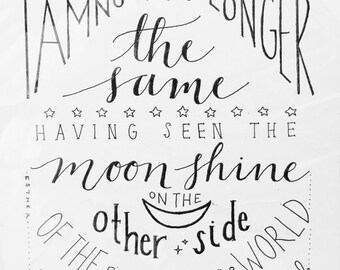 I AM NO LONGER
the
same
HAVING SEEN THE
moon shine
ON THE
other side
OF THE WORLD
ESTHER